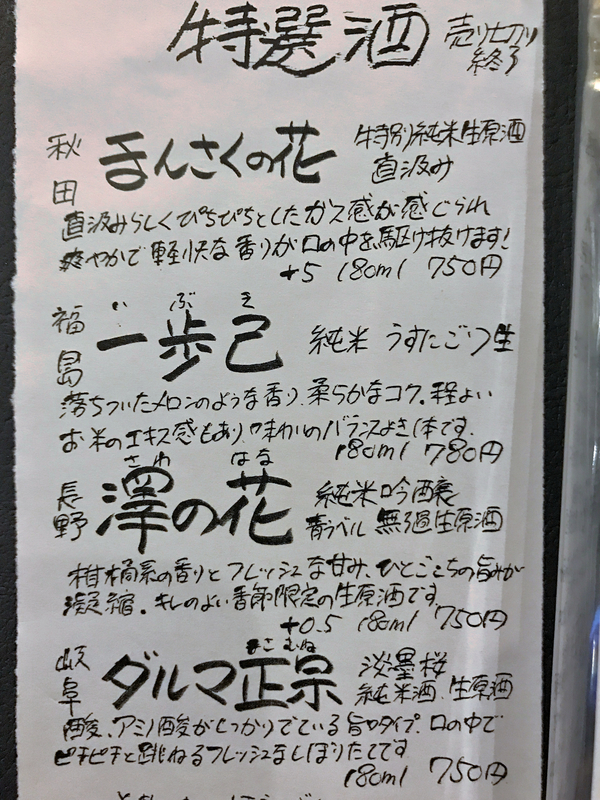 特選酒 売り切り
終了
秋田 まんさくの花 特別純米生原酒
直汲み
直汲みらしくぴちぴちとしたガス感が感じられ
爽やかで軽快な香りが口の中を駆け抜けます!
+5 180ml 750円
いぶき
福島 一歩己 純米 うすにごり生
落ちついたメロンのような香り、柔らかなコク。程よい
お米のエキス感もあり、味わいのバランスよき1本です。
180ml 780円
さわ はな
長野 澤の花 純米吟醸
青ラベル 無ろ過生原酒
柑橘系の香りとフレッシュな甘み、ひとごこちの旨みが
凝縮。キレのよい季節限定の生原酒です
+0.5 180ml 750円
まさむね
岐阜 ダルマ正宗 淡墨桜
純米酒 生原酒
酸、アミノ酸がしっかりでている旨口タイプ。口の中で
ピチピチと跳ねるフレッシュなしぼりたてです
180ml 750円